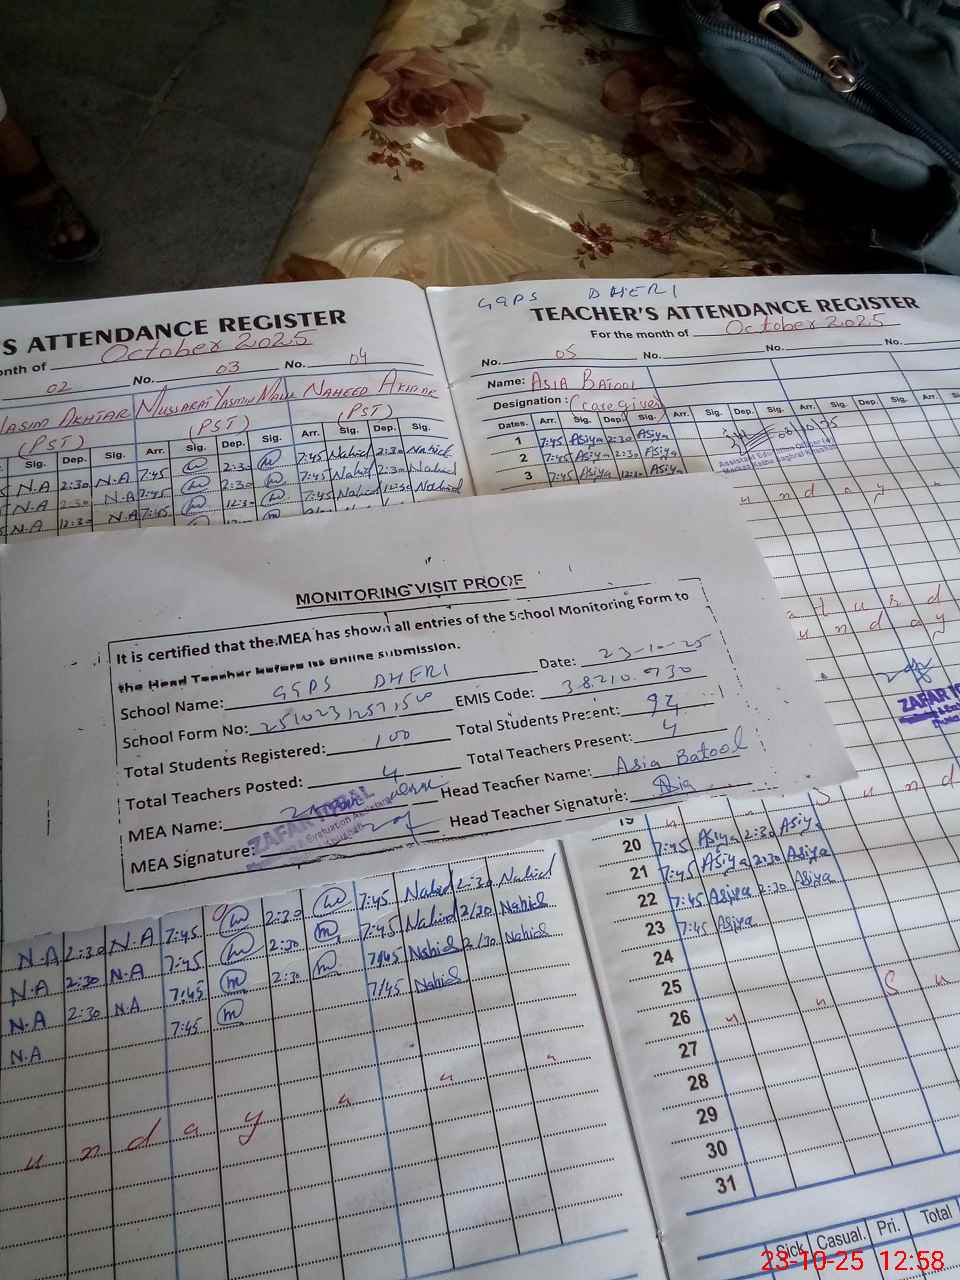 S ATTENDANCE REGISTER
nth of October 2025
02 No. 03 No. 04
ASIM AKHTAR MUSSARAT YASMIN NAHEED AKHTAR
(PST) (PST) (PST)
Sig. Dep. Sig. Arr. Sig. Dep. Sig. Arr. Sig. Dep. Sig.
N.A 2:30 N.A 7:45 2:30 7:45 Nahid 2:30 Nahid
N.A 2:30 N.A 7:45 2:30 7:45 Nahid 2:30 Nahid
N.A 12:30 N.A 7:45 12:30 7:45 Nahid 12:30 Nahid
GGPS DHERI
TEACHER'S ATTENDANCE REGISTER
For the month of October 2025
No. 05 No. No. No.
Name: ASIA BATOOL
Designation: (caregiver)
Dates. Arr. Sig. Dep. Sig. Arr. Sig. Dep. Sig. Arr. Sig. Dep. Sig. Arr.
1 7:45 Asiya 2:30 Asiya
2 7:45 Asiya 2:30 Asiya
3 7:45 Asiya 12:30 Asiya
u n d a y
a t u r d
u n d a y
ZAFAR
MONITORING VISIT PROOF
It is certified that the MEA has shown all entries of the School Monitoring Form to
the Head Teacher before its online submission.
School Name: GGPS DHERI Date: 23-10-25
School Form No: 2510231257150 EMIS Code: 38210930
Total Students Registered: 100 Total Students Present: 92
Total Teachers Posted: 4 Total Teachers Present: 4
MEA Name: Head Teacher Name: Asia Batool
MEA Signature: Head Teacher Signature: Asia
ZAFAR IQBAL
S u n d
19
20 7:45 Asiya 2:30 Asiya
21 7:45 Asiya 2:30 Asiya
22 7:45 Asiya 2:30 Asiya
23 7:45 Asiya
24
25
26 S u
27
28
29
30
31
N.A 2:30 N.A 7:45 2:30 7:45 Nahid 2:30 Nahid
N.A 2:30 N.A 7:45 2:30 7:45 Nahid 2/30 Nahid
N.A 2:30 N.A 7:45 2:30 7/45 Nahid 2/30 Nahid
N.A 7:45 7/45 Nahid
u n d a y
Sick Casual. Pri. Total
23-10-25 12:58